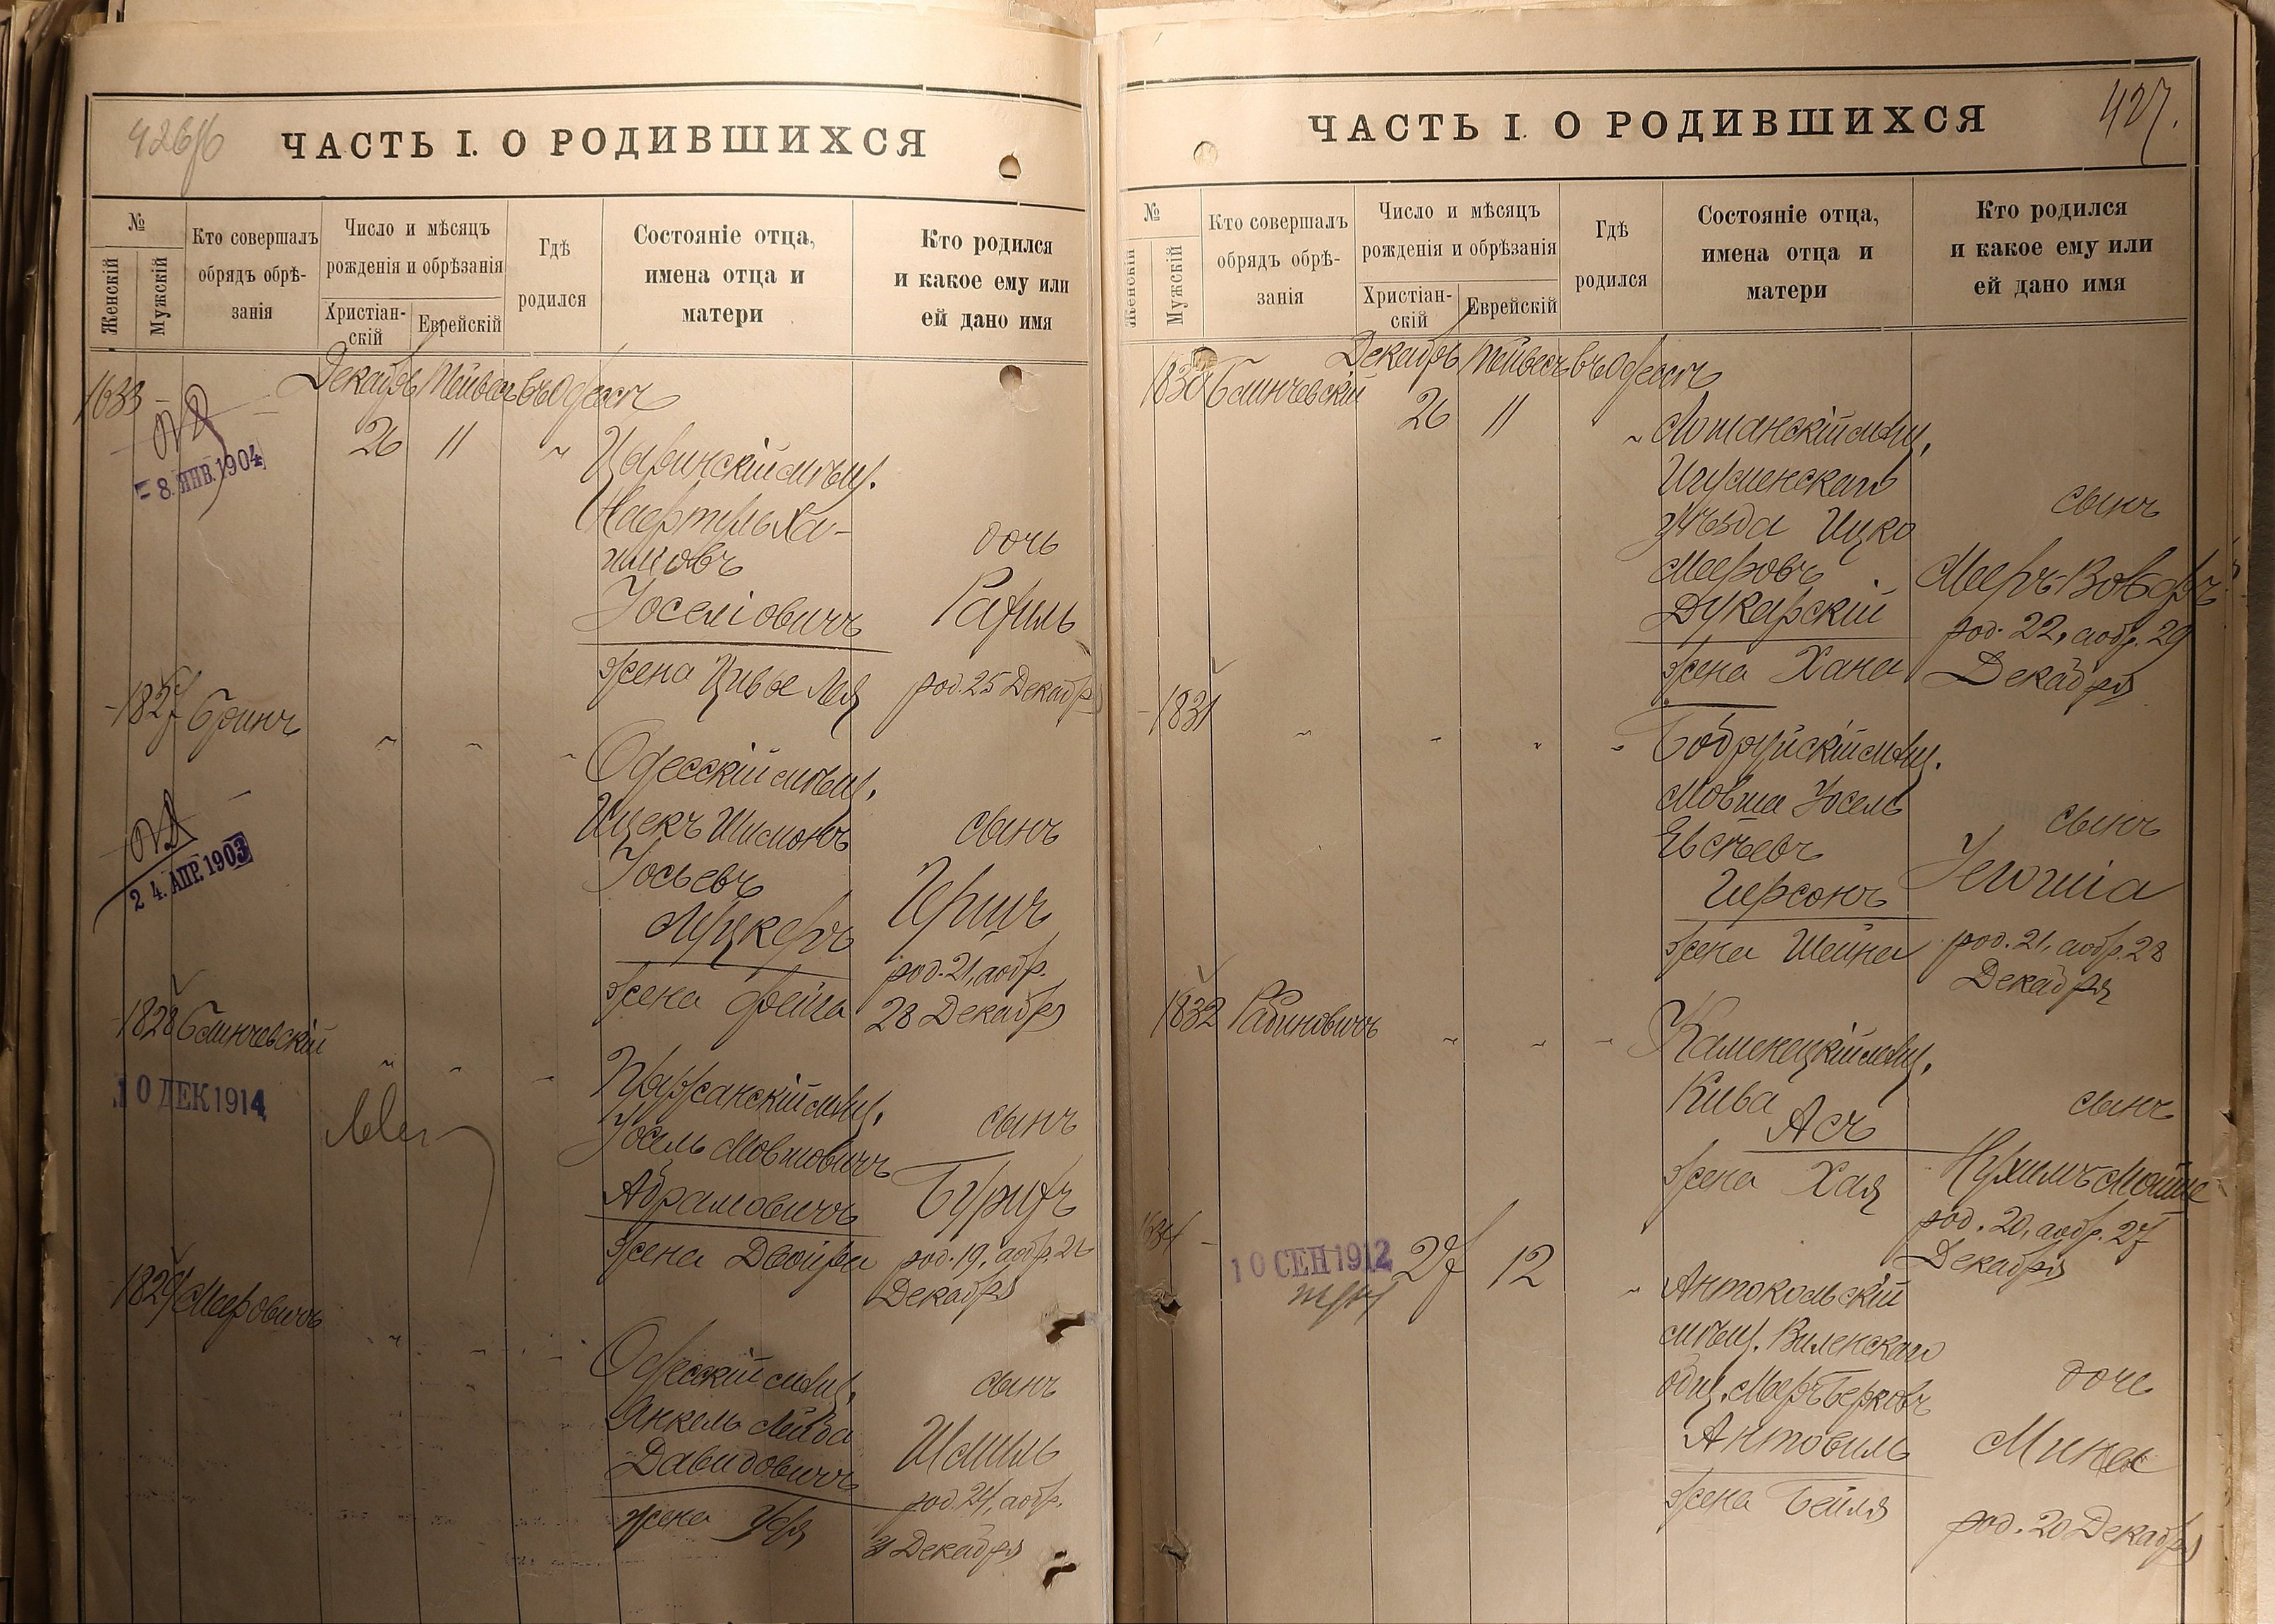 ЧАСТЬ I. О РОДИВШИХСЯ
№
Женскій
Мужскій
Кто совершалъ
обрядъ обрѣ-
занія
Число и мѣсяцъ
рожденія и обрѣзанія
Христіан-
скій
Еврейскій
Гдѣ
родился
Состояніе отца,
имена отца и
матери
Кто родился
и какое ему или
ей дано имя
1633
Декабрь Тейвесъ въ Одессѣ
8. ЯНВ. 1904
26 11
мѣщ.
Ха-
имовъ
Іоселіовичъ
жена Цивье Лея
дочь
Рахиль
род. 25 Декабря
1827
24. АПР. 1903
Одесскій мѣщ.
Ицекъ Шимонъ
Іосьевъ
Луцкеръ
жена Фейга
сынъ
Гершъ
род. 21, а обр.
28 Декабря
1828 Блинчевскій
10 ДЕК 1914
Пружанскій мѣщ.
Іосель Мовшовичъ
Абрамовичъ
жена Двойра
сынъ
Бурихъ
род. 19, а обр.
Декабря
1829 Меровичъ
Одесскій мѣщ.
Янкель Лейва
Давидовичъ
жена
сынъ
Шмиль
род. 24, а обр.
31 Декабря
427.
ЧАСТЬ I. О РОДИВШИХСЯ
№
Женскій
Мужскій
Кто совершалъ
обрядъ обрѣ-
занія
Число и мѣсяцъ
рожденія и обрѣзанія
Христіан-
скій
Еврейскій
Гдѣ
родился
Состояніе отца,
имена отца и
матери
Кто родился
и какое ему или
ей дано имя
1830 Блинчевскій
Декабрь Тейвесъ въ Одессѣ
26 11
мѣщ.
Игуменскаго
уѣзда Ицко
Мееровъ
Дукарскій
жена Хана
сынъ
Мееръ-Вольфъ
род. 22, а обр. 29
Декабря
1831
Бобруйскій мѣщ.
Мовша Іосель
Евсѣевъ
Герсонъ
жена Шейна
сынъ
Іегошіа
род. 21, а обр. 28
Декабря
1832 Рабиновичъ
Каменецкій мѣщ.
Кива
Асъ
жена Хая
сынъ
Нухимъ Мойше
род. 20, а обр. 27
Декабря
1634
10 СЕН 1912
27 12
Антокольскій
мѣщ. Виленскаго
общ. Мееръ Берковъ
Антовиль
жена Бейля
дочь
Мина
род. 20 Декабря